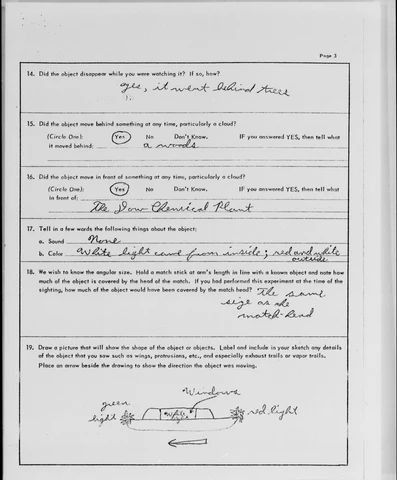 Page 3
14. Did the object disappear while you were watching it? If so, how?
yes, it went behind trees
15. Did the object move behind something at any time, particularly a cloud?
(Circle One): Yes No Don't Know. IF you answered YES, then tell what
it moved behind: a woods
16. Did the object move in front of something at any time, particularly a cloud?
(Circle One): Yes No Don't Know. IF you answered YES, then tell what
in front of:
The Dow Chemical Plant
17. Tell in a few words the following things about the object:
a. Sound None
b. Color White light came from inside; red and white
outside
18. We wish to know the angular size. Hold a match stick at arm's length in line with a known object and note how
much of the object is covered by the head of the match. If you had performed this experiment at the time of the
sighting, how much of the object would have been covered by the match head? The same
size as the
match-head
19. Draw a picture that will show the shape of the object or objects. Label and include in your sketch any details
of the object that you saw such as wings, protrusions, etc., and especially exhaust trails or vapor trails.
Place an arrow beside the drawing to show the direction the object was moving.
Windows
green
light
White
red light